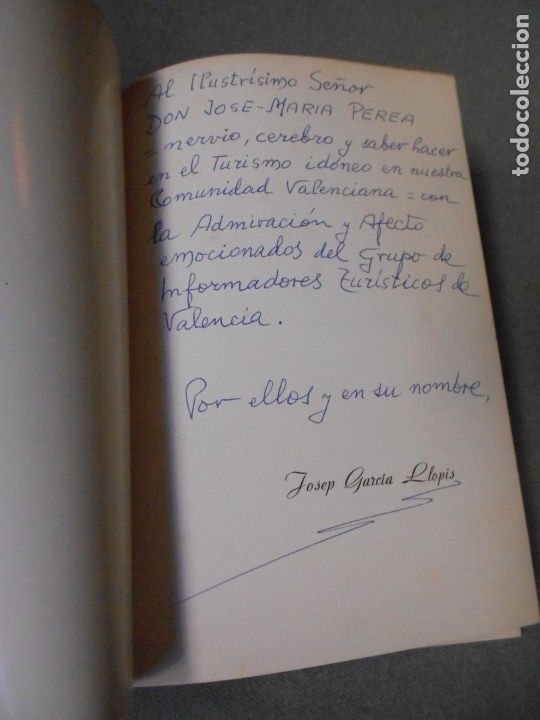 Al Ilustrísimo Señor
DON JOSE-MARIA PEREA
= nervio, cerebro y saber hacer
en el Turismo idóneo en nuestra
Comunidad Valenciana = con
la Admiración y Afecto
emocionados del Grupo de
Informadores Turísticos de
Valencia.
Por ellos y en su nombre,
Josep García Llopis
todocoleccion.net